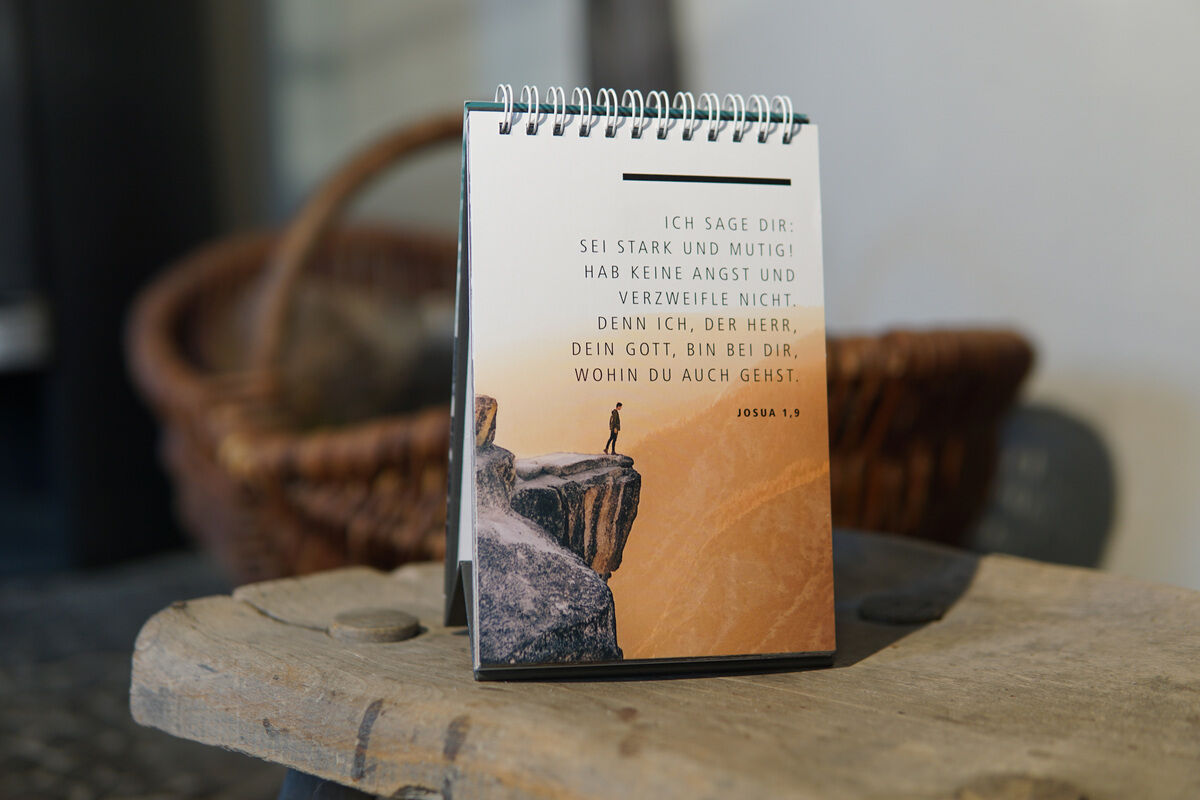 ICH SAGE DIR:
SEI STARK UND MUTIG!
HAB KEINE ANGST UND
VERZWEIFLE NICHT.
DENN ICH, DER HERR,
DEIN GOTT, BIN BEI DIR,
WOHIN DU AUCH GEHST.
JOSUA 1,9